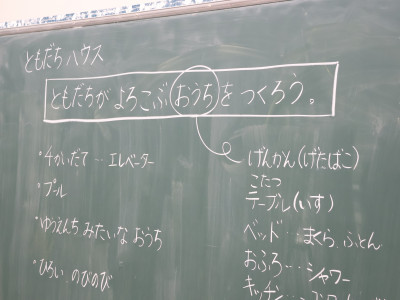 ともだち ハウス
ともだちが よろこぶ おうち を つくろう。
・4かいだて…エレベーター
・プール
・ゆうえんち みたいな おうち
・ひろい のびのび
げんかん(げたばこ)
こたつ
テーブル(いす)
ベッド…まくら、ふとん
おふろ…シャワー
キッチン…